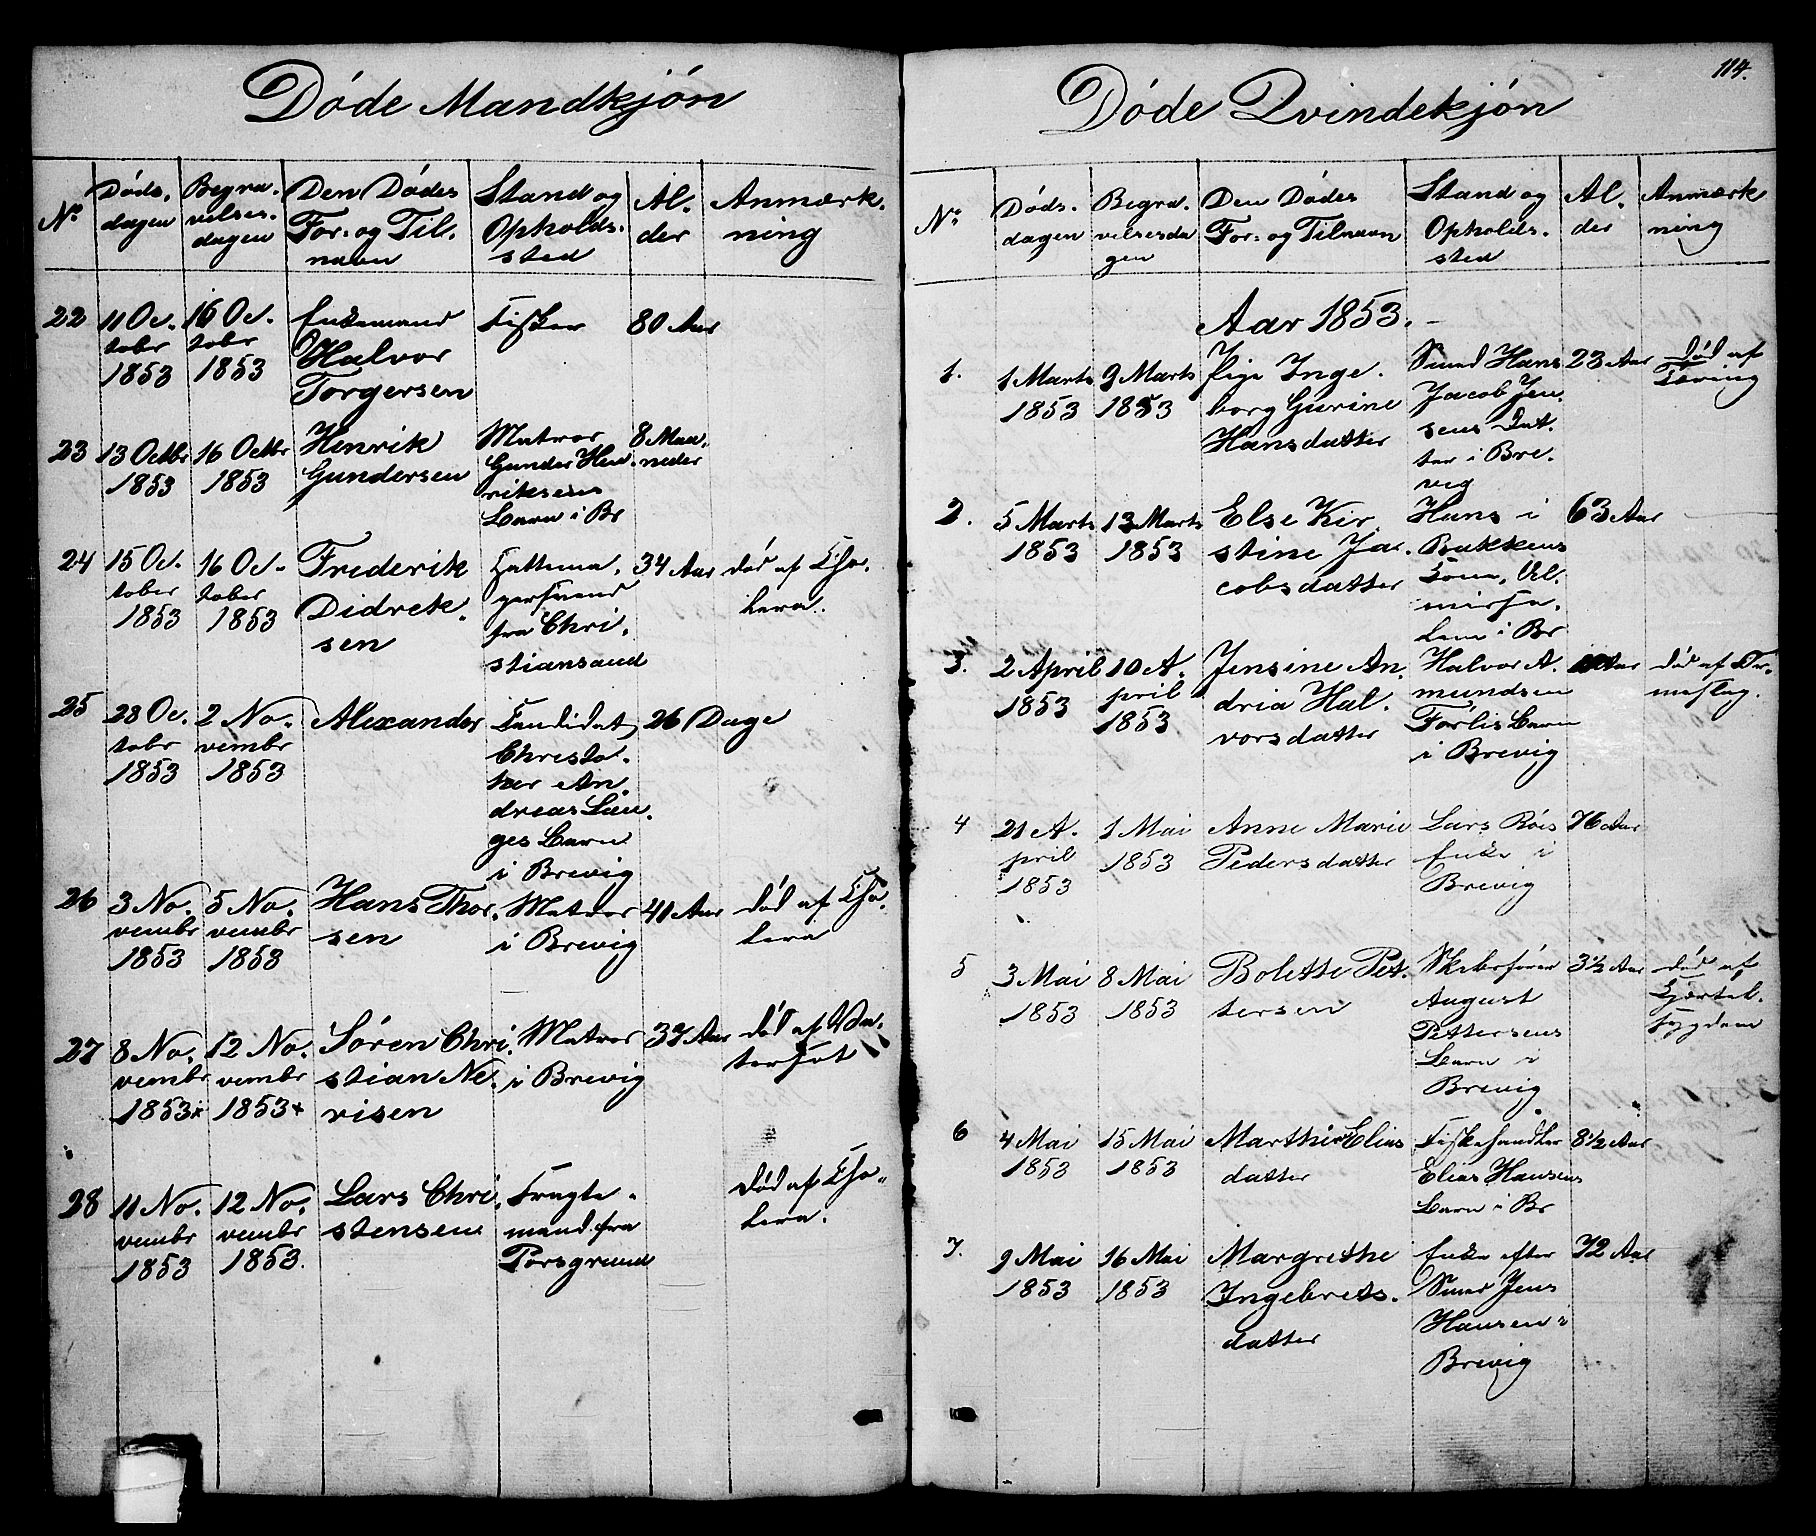 Døde Mandkjøn
No
Døds-
dagen
Begra-
velses-
dagen
Den Dødes
For- og Til-
navn
Stand og
Opholds-
sted
Al-
der
Anmærk-
ning
22
11 Oc-
tobr
1853
16 Oc-
tobr
1853
Enkemand
Halvor
Torgersen
Fisker
80 Aar
23
13 Octbr
1853
16 Octbr
1853
Henrik
Gundersen
Matros
Gunder Hen-
riksens
Barn i Br
8 Maa-
neder
24
15 Oc-
tober
1853
16 Oc-
tober
1853
Frederik
Didrek-
sen
Hattema-
gersvend
fra Chri-
stiansand
34 Aar
død af Cho-
lera.
25
28 Oc-
tobr
1853
2 No-
vembr
1853
Alexander
Candidat
Christo-
fer An-
dreas Lan-
ges Barn
i Brevig
26 Dage
26
3 No-
vembr
1853
5 No-
vembr
1853
Hans Thor-
sen
Matros
i Brevig
41 Aar
død af Cho-
lera
27
8 No-
vembr
1853
12 No-
vembr
1853
Søren Chri-
stian Ne-
risen
Matros
i Brevig
37 Aar
død af Va-
tersot
28
11 No-
vembr
1853
12 No-
vembr
1853.
Lars Chri-
stensen
Fragte-
mand fra
Porsgrund
død af Cho-
lera.
114.
Døde Qvindekjøn
No
Døds-
dagen
Begra-
velsesda
gen
Den Dødes
For- og Tilnavn
Stand og
Opholds-
sted
Al-
der
Anmærk
ning
Aar 1853.
1.
1 Marts
1853
9 Marts
1853
Pige Inge-
borg Gurine
Hansdatter
Smed Hans
Jacob Jen-
sens Dat-
ter i Bre-
vig
23 Aar
død af
Tæring
2.
5 Marts
1853
13 Marts
1853
Else Kir-
stine Ja-
cobsdatter
Hans i
Bakkens
Kone, Al-
misse-
lem i Br
63 Aar
3.
2 April
1853
10 A-
pril
1853
Jensine An-
dria Hal-
vorsdatter
Halvor A-
mundsen
Førlis Barn
i Brevig
Aar
død af
4
21 A-
pril
1853
1 Mai
1853
Anne Marie
Pedersdatter
Lars Røis
Enke i
Brevig
76 Aar
5
3 Mai
1853
8 Mai
1853
Bolette Pet-
tersen
Skibsfører
August
Pettersens
Barn i
Brevig
3½ Aar
død af
Kjertel-
sygdom
6
4 Mai
1853
15 Mai
1853
Marthie Elias
datter
Fiskehandler
Elias Hansens
Barn i Br
8½ Aar
7.
9 Mai
1853
16 Mai
1853
Margrethe
Ingebrets-
datter
Enke efter
Smed Jens
Hansen i
Brevig
72 Aar